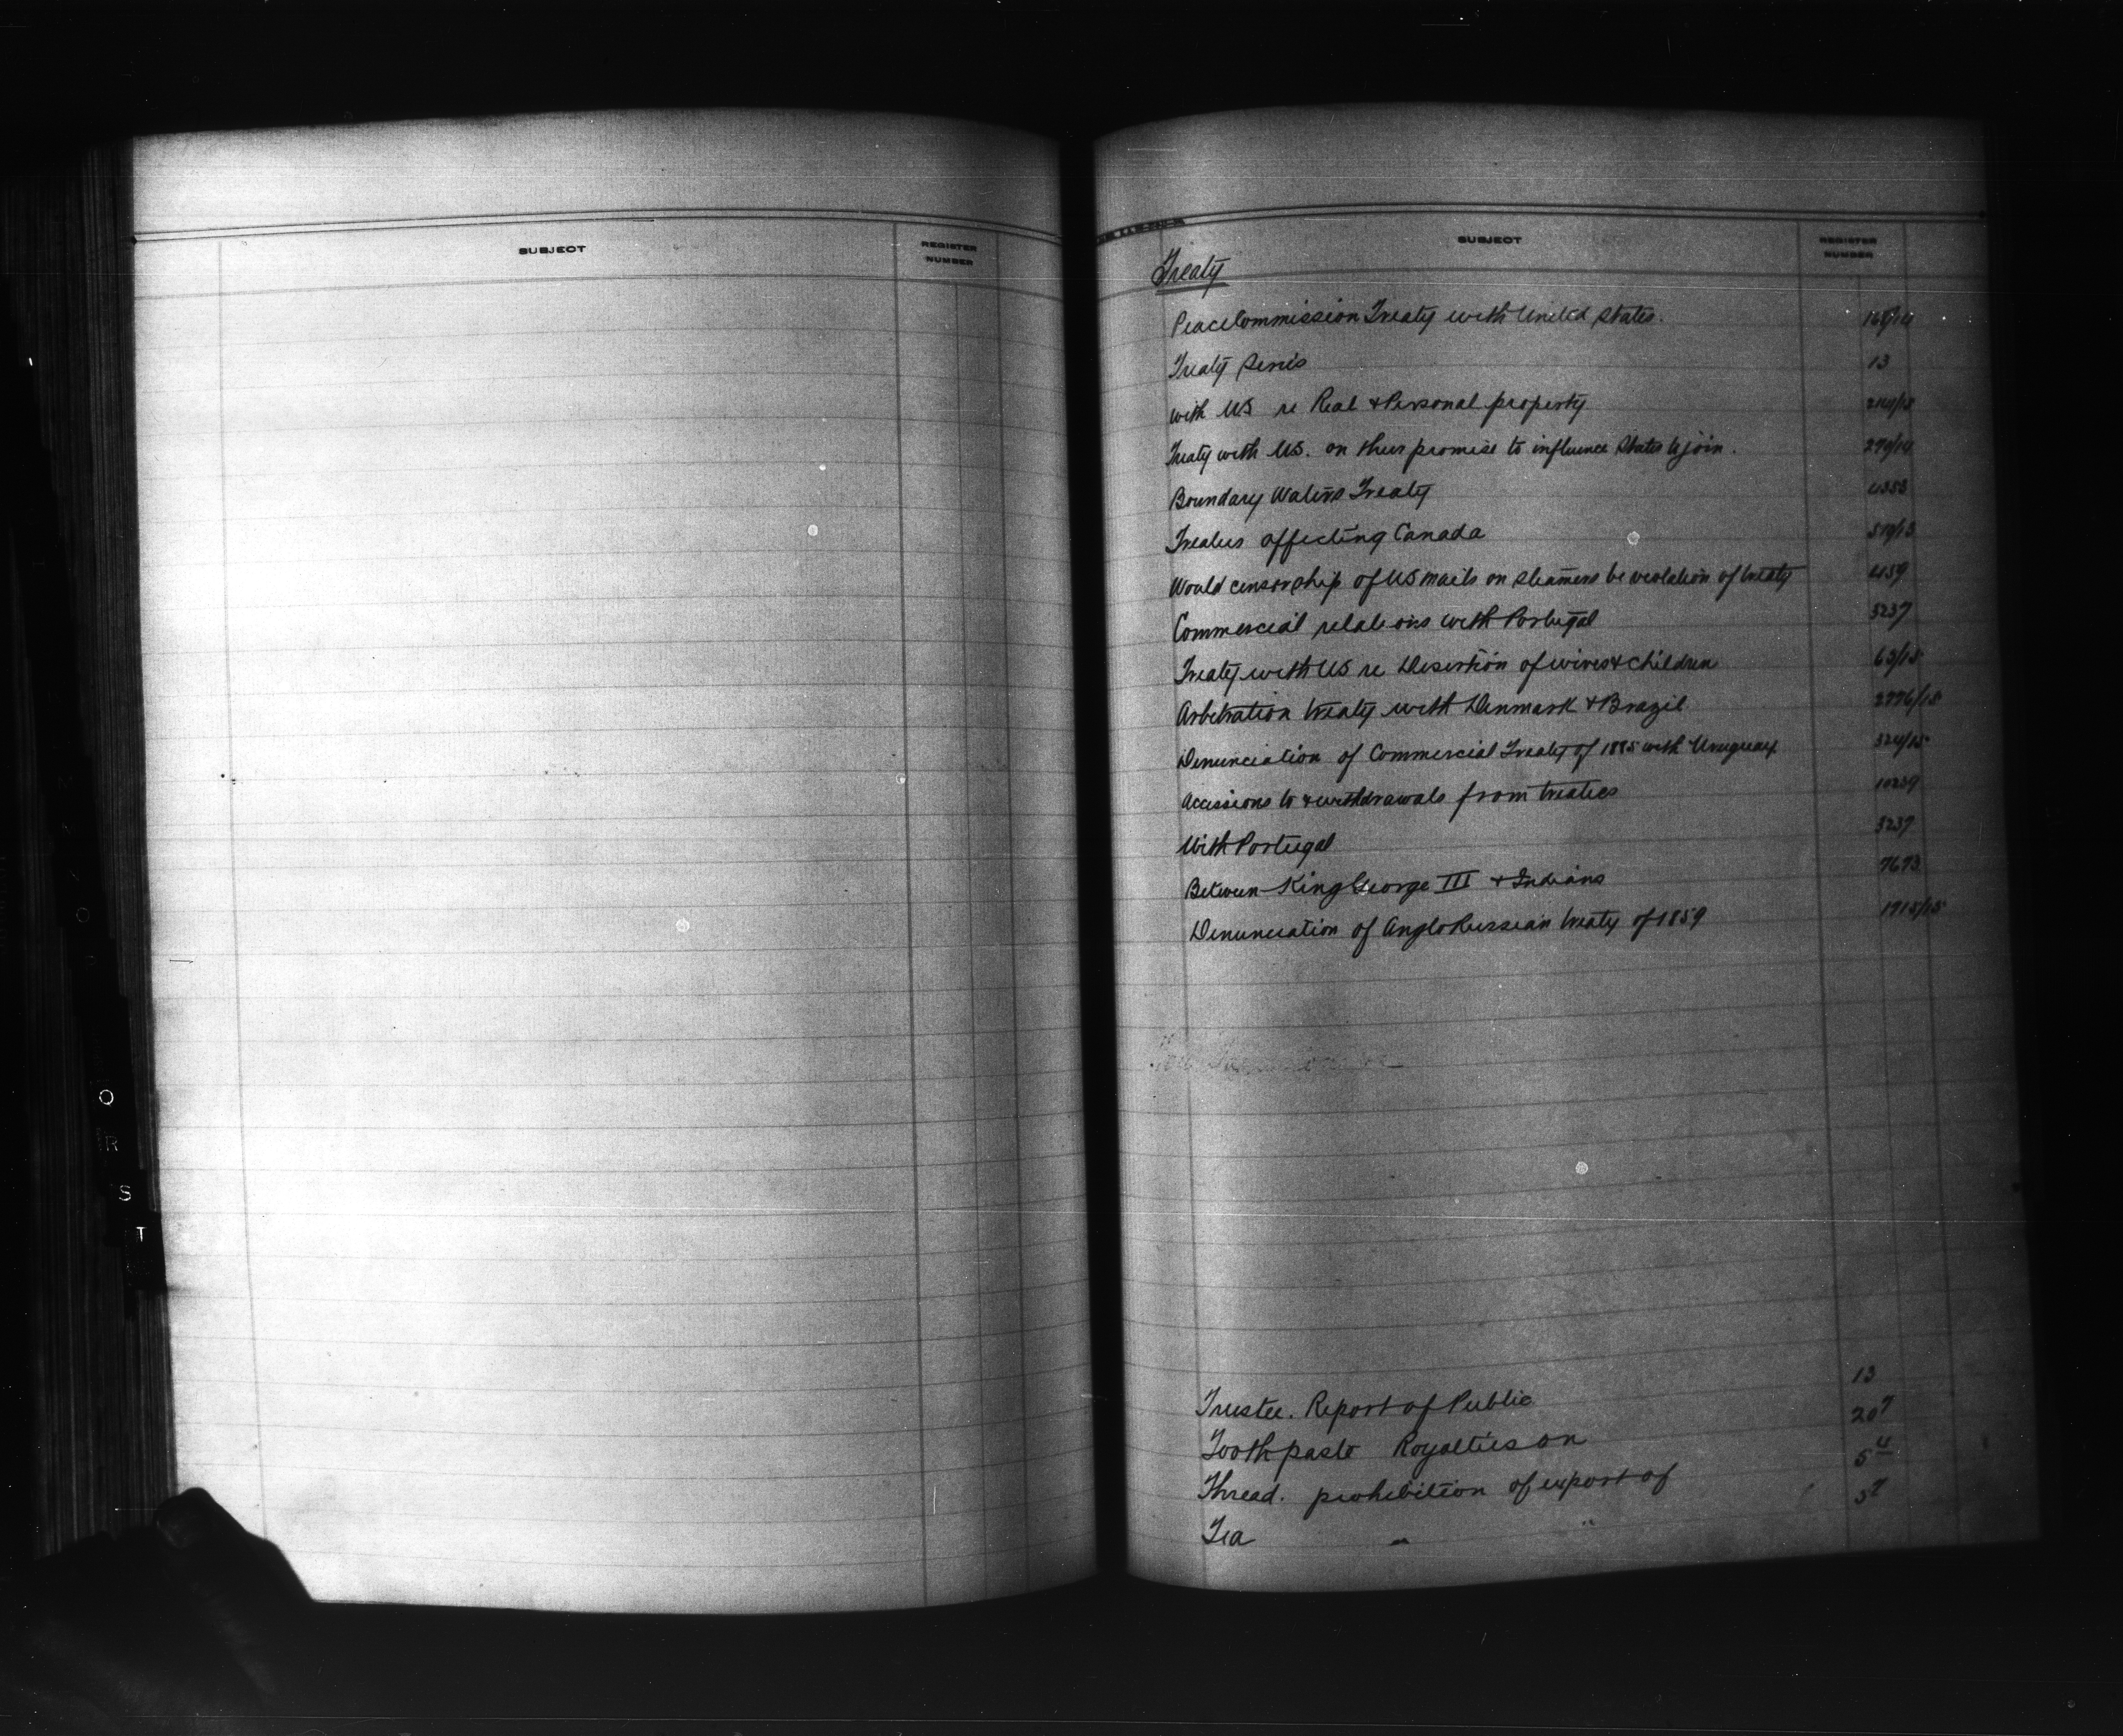 SUBJECT
REGISTER
NUMBER
SUBJECT
REGISTER
NUMBER
Treaty
Peace Commission Treaty with United States. 168/14
Treaty Series 13
with US re Real & Personal property
Treaty with US. on their promise to influence States to join. 279/14
Boundary Waters Treaty
Treaties affecting Canada 519/13
Would censorship of US mails on steamers be violation of treaty 4159
Commercial relations with Portugal 3237
Treaty with US re Desertion of wives & children 63/15
Arbitration treaty with Denmark & Brazil 2776/15
Denunciation of Commercial Treaty of 1885 with Uruguay 324/15
Accessions to & withdrawals from treaties 10239
With Portugal 3237
Between King George III & Indians 7673
Denunciation of Anglo Russian treaty of 1859 1915/15
Trustee. Report of Public 13
Tooth paste Royalties on 207
Thread. prohibition of export of 54
Tea " " 57
O
R
S
T